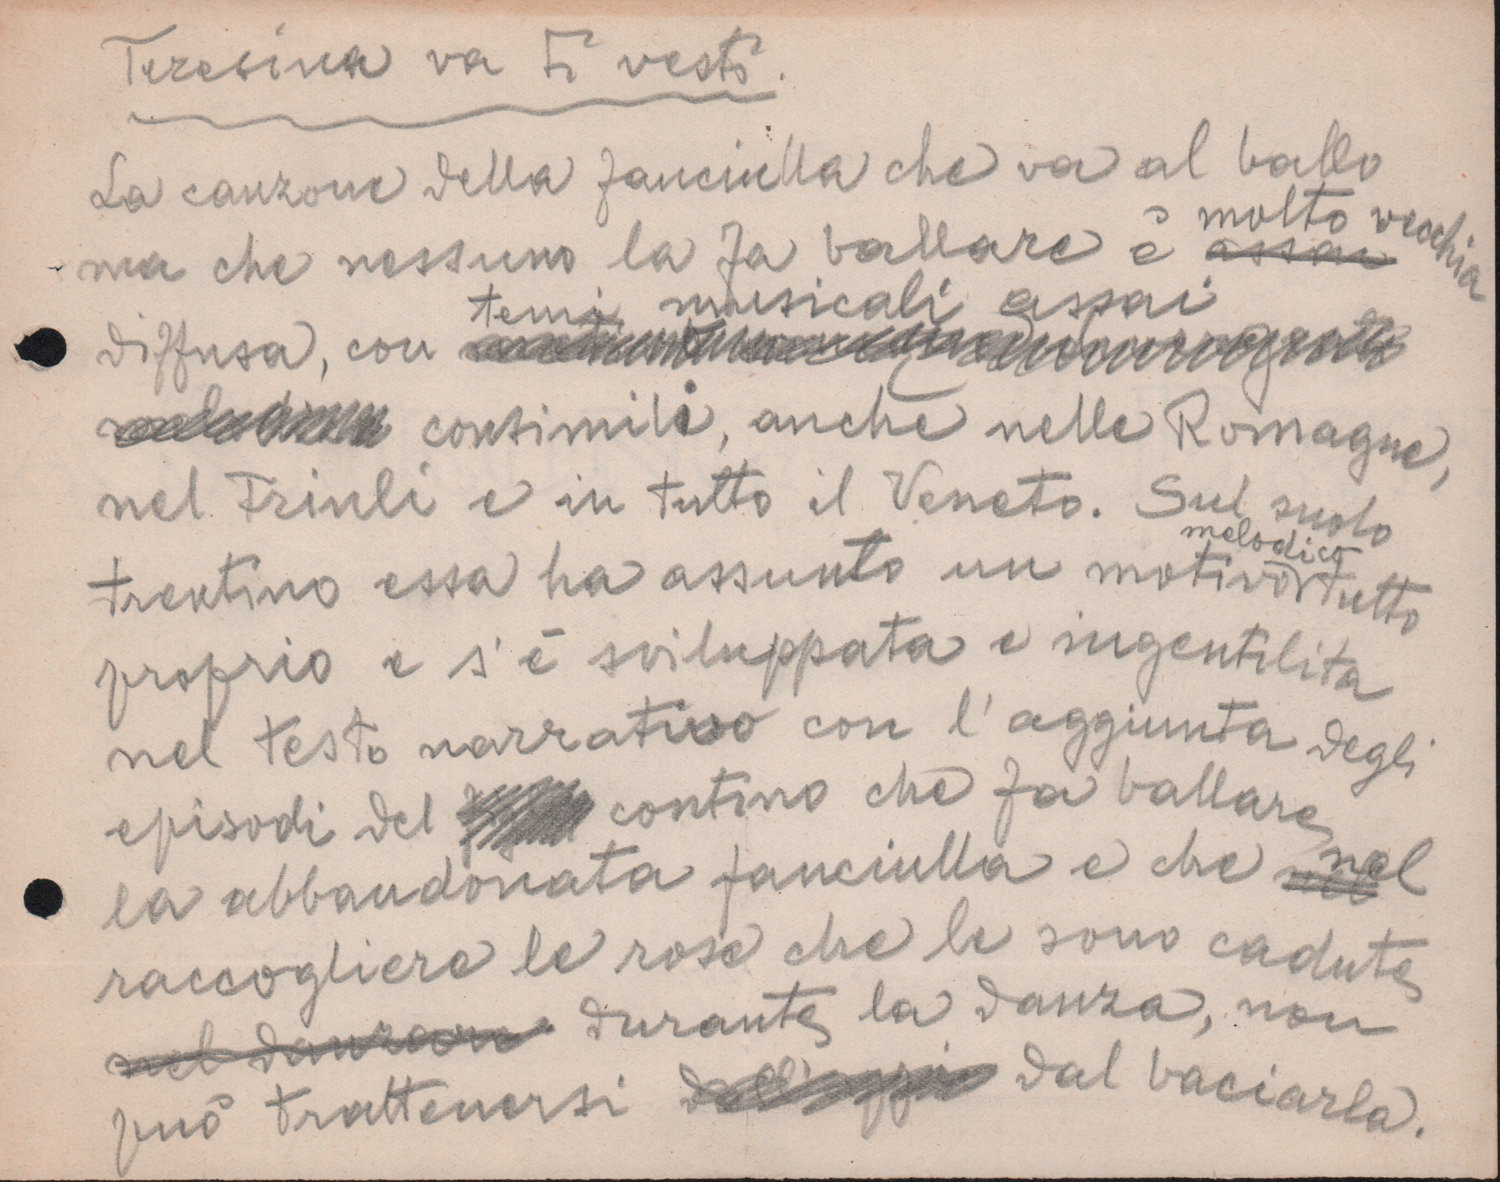 Teresina va ti vestì.
La canzone della fanciulla che va al ballo
ma che nessuno la fa ballare è assai molto vecchia
diffusa, con temi musicali assai
consimili, anche nelle Romagne,
nel Friuli e in tutto il Veneto. Sul suolo
trentino essa ha assunto un motivo melodico tutto
proprio e s'è sviluppata e ingentilita
nel testo narrativo con l'aggiunta degli
episodi del contino che fa ballare
la abbandonata fanciulla e che nel
raccogliere le rose che le sono cadute
nel danzare durante la danza, non
può trattenersi dal baciarla.